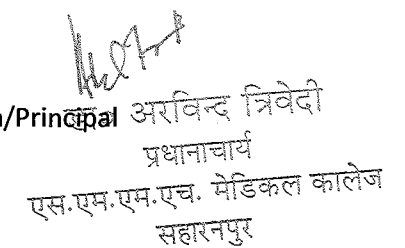 n/Principal अरविन्द त्रिवेदी
प्रधानाचार्य
एस.एम.एम.एच. मेडिकल कालेज
सहारनपुर